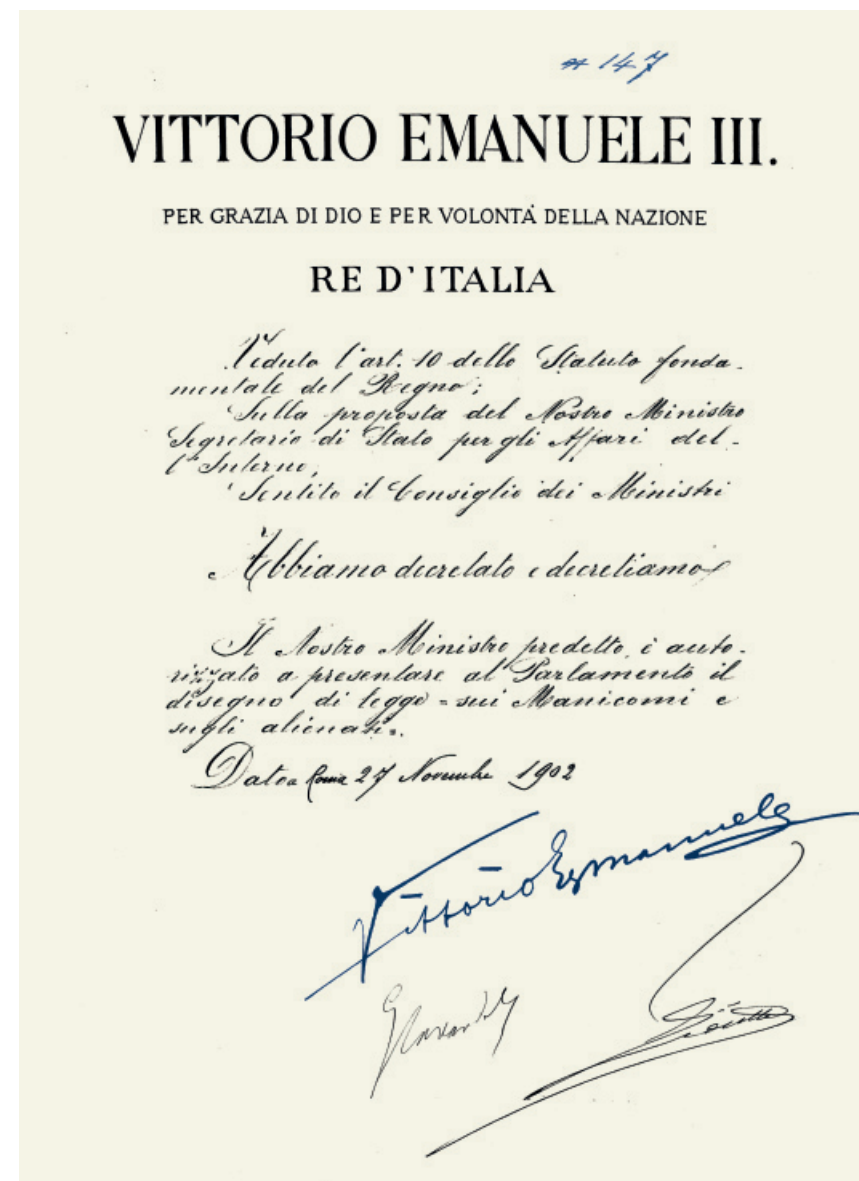 # 147
VITTORIO EMANUELE III.
PER GRAZIA DI DIO E PER VOLONTÀ DELLA NAZIONE
RE D'ITALIA
Veduto l'art. 10 dello Statuto fonda-
mentale del Regno;
Sulla proposta del Nostro Ministro
Segretario di Stato per gli Affari del-
l'Interno;
Sentito il Consiglio dei Ministri
Abbiamo decretato e decretiamo
Il Nostro Ministro predetto è auto-
rizzato a presentare al Parlamento il
disegno di legge "sui Manicomi e
sugli alienati".
Dato a Roma 27 Novembre 1902
Vittorio Emanuele
Zanardelli
Giolitti